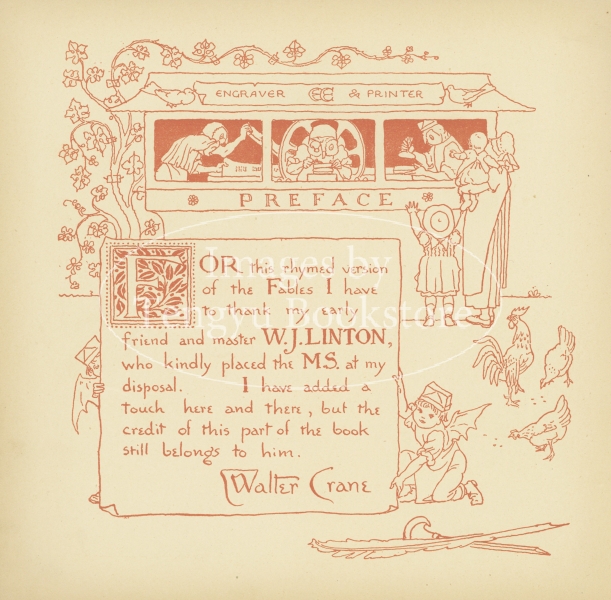 ENGRAVER EC & PRINTER
PREFACE
FOR this rhymed version
of the Fables I have
to thank my early
friend and master W.J. LINTON,
who kindly placed the MS. at my
disposal. I have added a
touch here and there, but the
credit of this part of the book
still belongs to him.
Walter Crane
Images by
Tengyu Bookstore